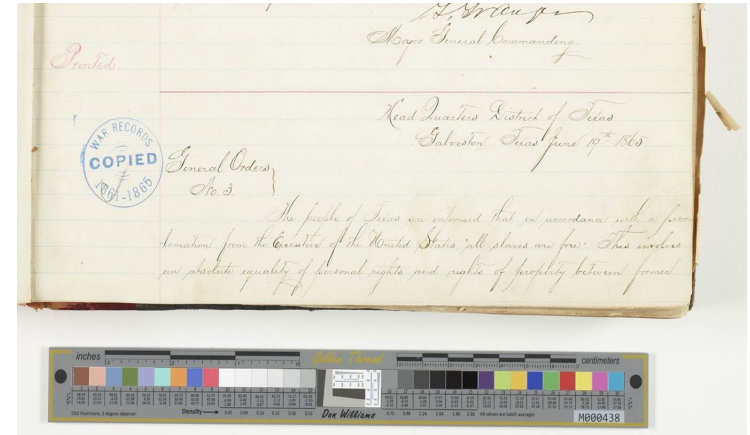 G. Granger
Major General Commanding.
Printed
Head Quarters District of Texas
Galveston Texas June 19th 1865
WAR RECORDS
COPIED
1861-1865
General Orders
No. 3.
The people of Texas are informed that in accordance with a proc-
lamation from the Executive of the United States, "all slaves are free." This involves
an absolute equality of personal rights and rights of property between former
inches
Golden Thread
centimeters
D50 Illuminant, 2 degree observer
Density
Don Williams
All values are batch averages
M000438